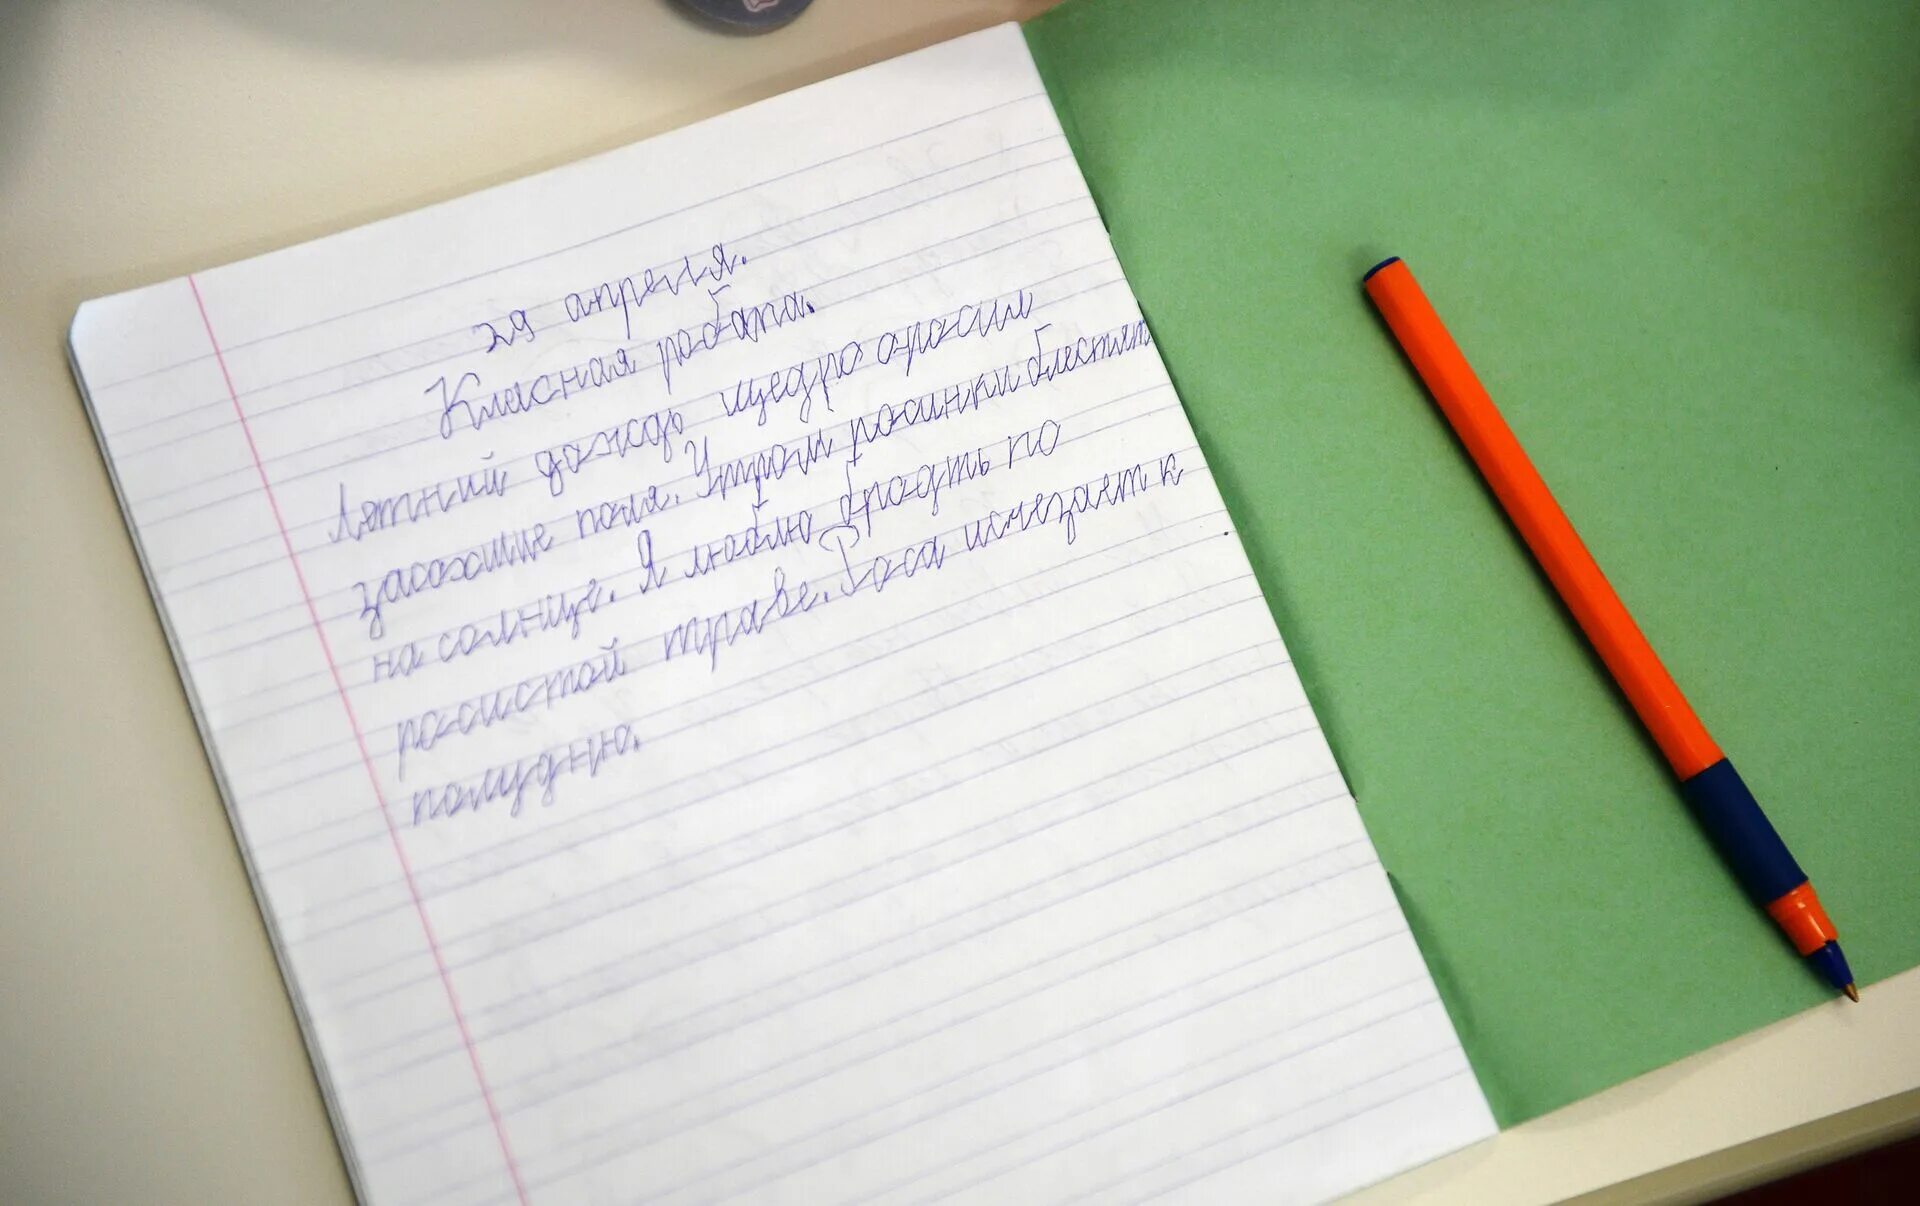 29 апреля.
Класная робата.
Лятний дождь щедро оросил
засохшие поля. Утром росинки блестят
на солнце. Я люблю бродть по
росистой траве. Роса исчезает к
полудню.